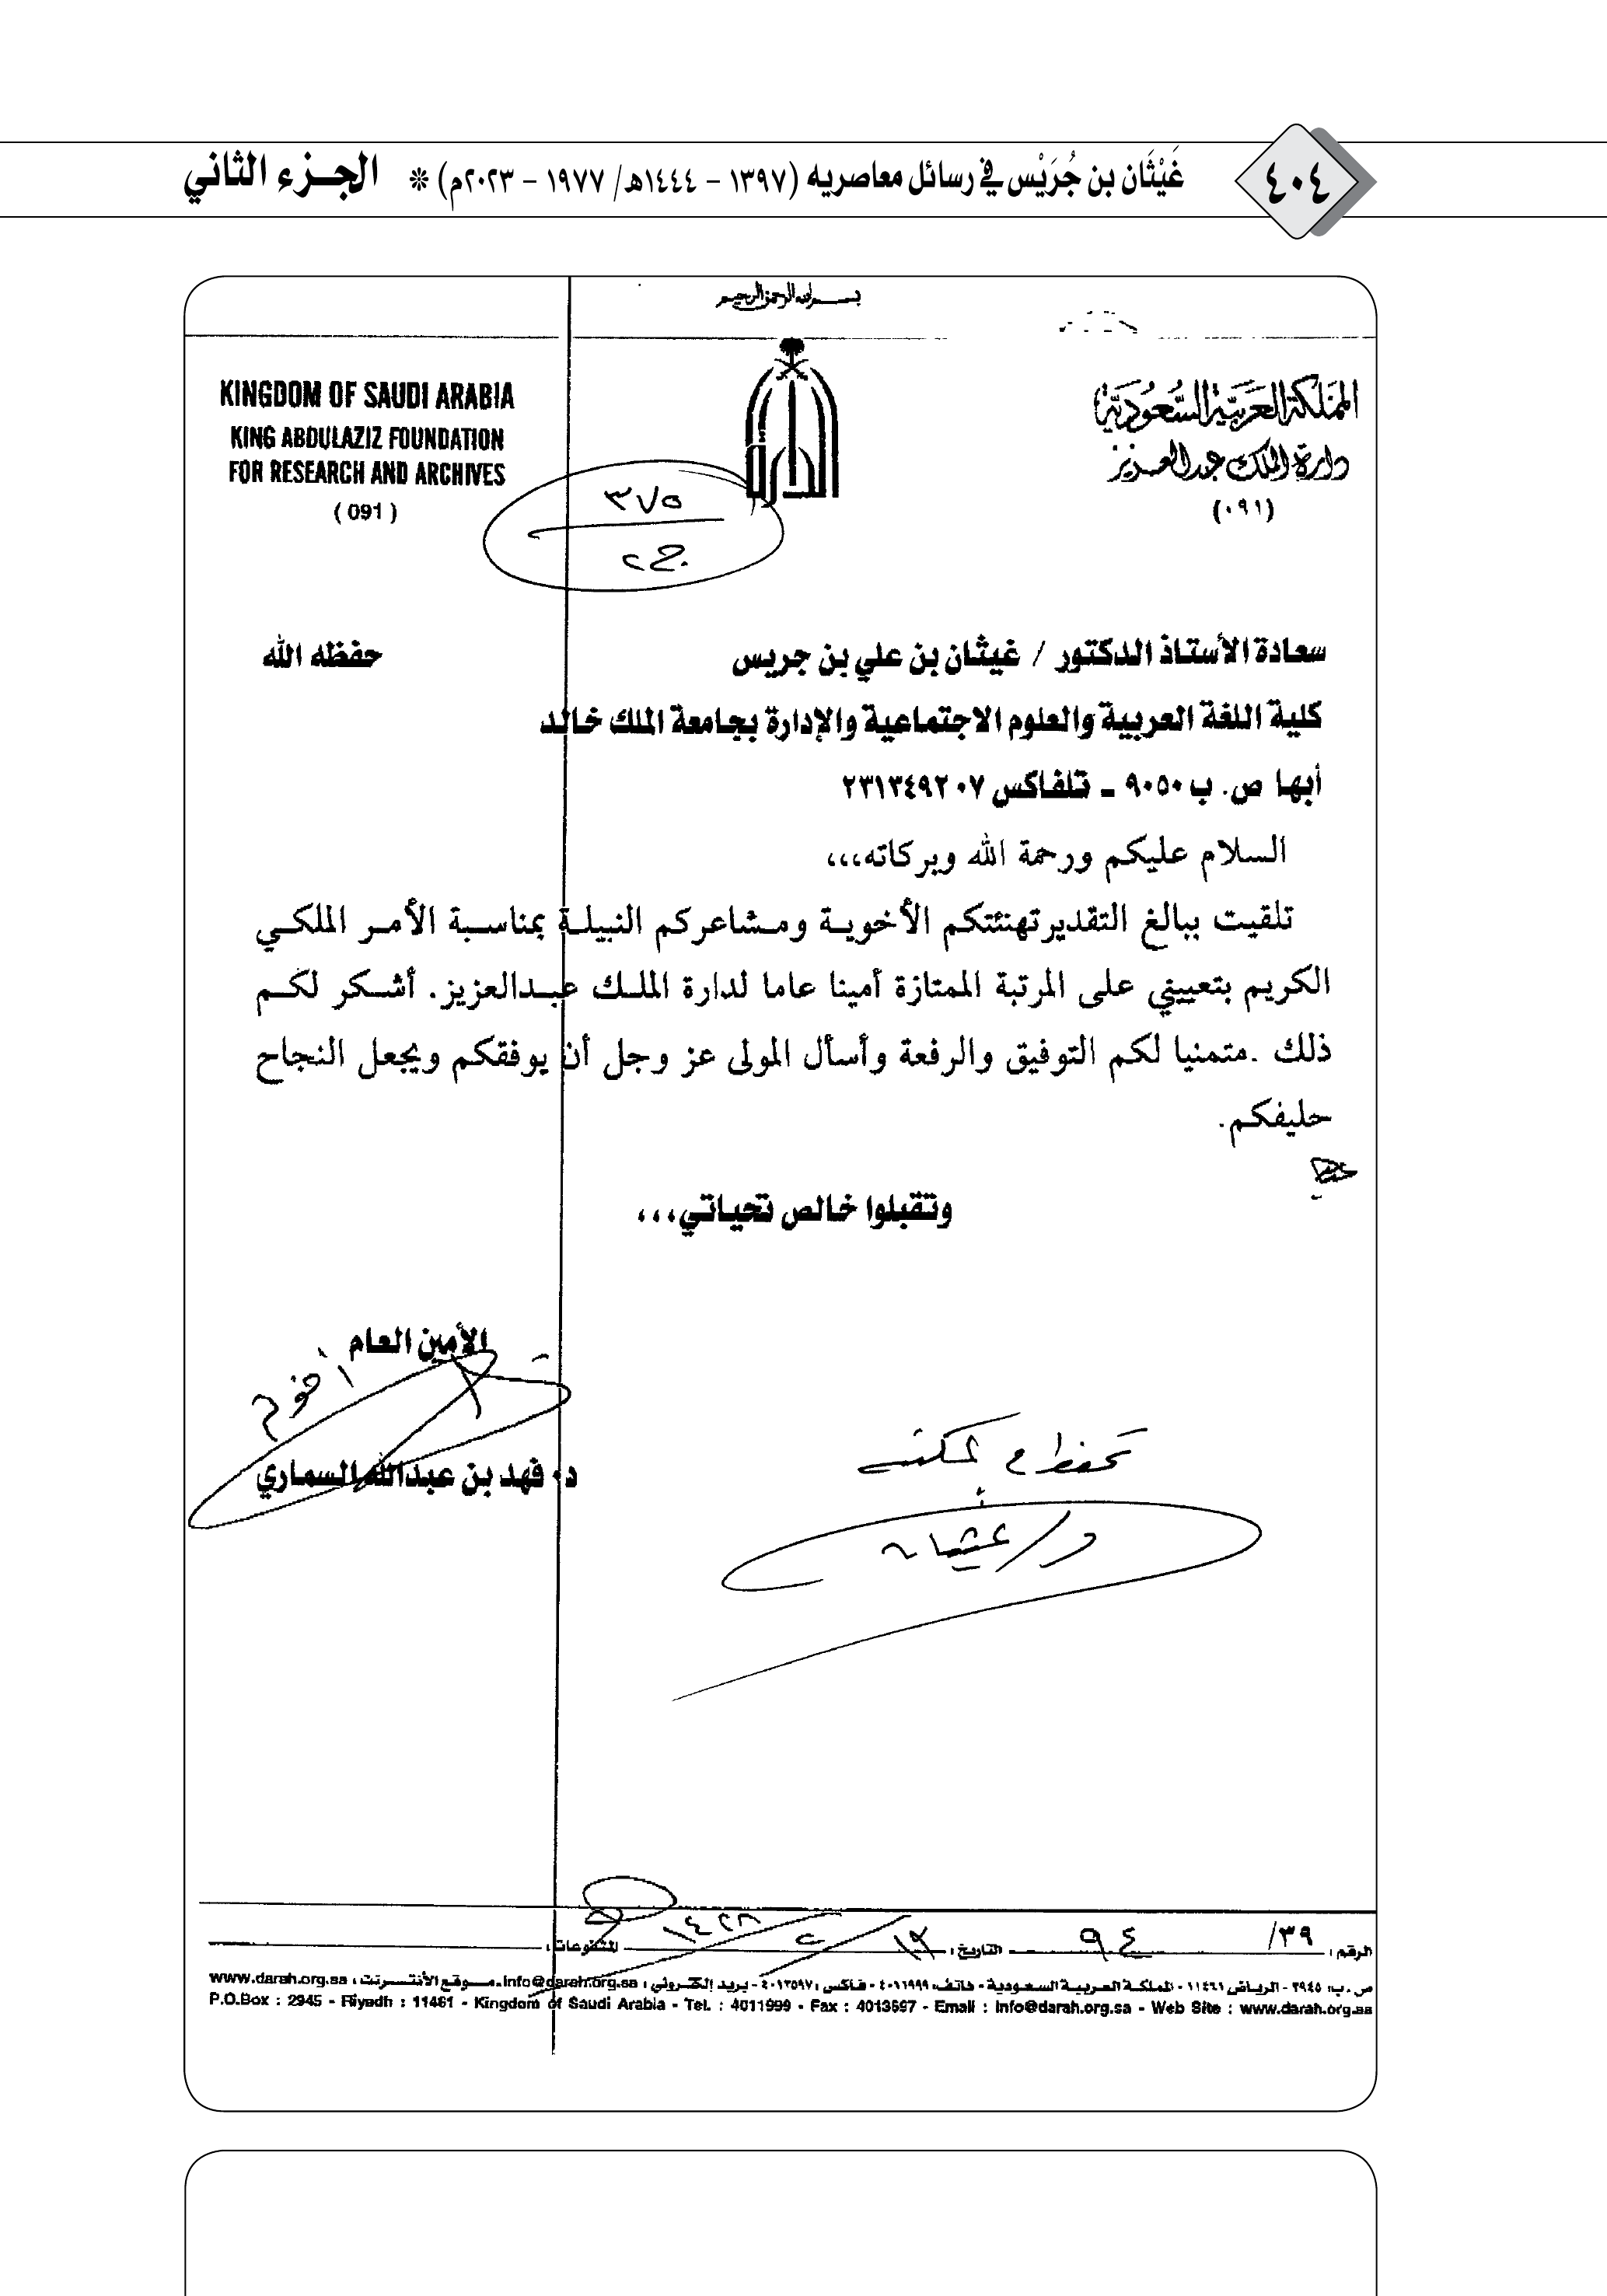 ٤٠٤
غَيْثَان بن جُرَيْس في رسائل معاصريه (١٣٩٧ – ١٤٤٤هـ/ ١٩٧٧ – ٢٠٢٣م) * الجزء الثاني
بسم الله الرحمن الرحيم
المملكة العربية السعودية
دارة الملك عبدالعزيز
(٠٩١)
KINGDOM OF SAUDI ARABIA
KING ABDULAZIZ FOUNDATION
FOR RESEARCH AND ARCHIVES
( 091 )
٣٧٥
ج٢
سعادة الأستاذ الدكتور / غيثان بن علي بن جريس حفظه الله
كلية اللغة العربية والعلوم الاجتماعية والإدارة بجامعة الملك خالد
أبها ص. ب ٩٠٥٠ ـ تلفاكس ٠٧ ٢٣١٣٤٩٢
السلام عليكم ورحمة الله وبركاته،،،
تلقيت ببالغ التقدير تهنئتكم الأخوية ومشاعركم النبيلة بمناسبة الأمر الملكي
الكريم بتعييني على المرتبة الممتازة أمينا عاما لدارة الملك عبدالعزيز. أشكر لكم
ذلك .متمنيا لكم التوفيق والرفعة وأسأل المولى عز وجل أن يوفقكم ويجعل النجاح
حليفكم.
وتقبلوا خالص تحياتي،،،
الأمين العام
أخوكم
د. فهد بن عبدالله السماري
تحفظ م لمكتبي
د/ غيثان
الرقم : ٣٩/ ٩٤ التاريخ : ١٢/٢/١٤٢٨ المشفوعات :
ص.ب: ٢٩٤٥ - الرياض ١١٤٦١ - المملكة العربية السعودية - هاتف: ٤٠١١٩٩٩ - فاكس : ٤٠١٣٥٩٧ - بريد إلكتروني : info@darah.org.sa - موقع الأنترنت : www.darah.org.sa
P.O.Box : 2945 - Riyadh : 11461 - Kingdom of Saudi Arabia - Tel. : 4011999 - Fax : 4013597 - Email : info@darah.org.sa - Web Site : www.darah.org.sa